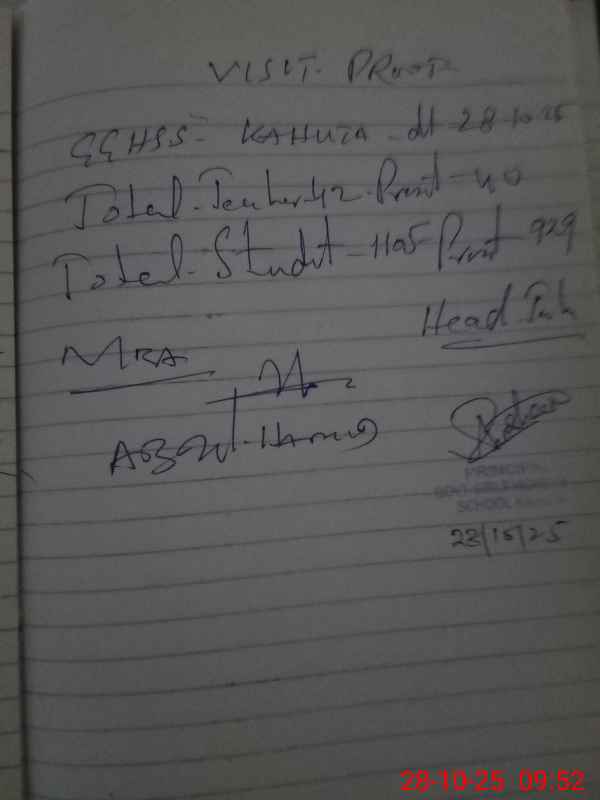 VISIT PROOF
GGHSS - KAHUTA dt 28-10-25
Total Teacher 42 Present - 40
Total Student - 1105 Present 929
Head
MEA
ABDUL
PRINCIPAL
SCHOOL
28/10/25
28-10-25 09:52